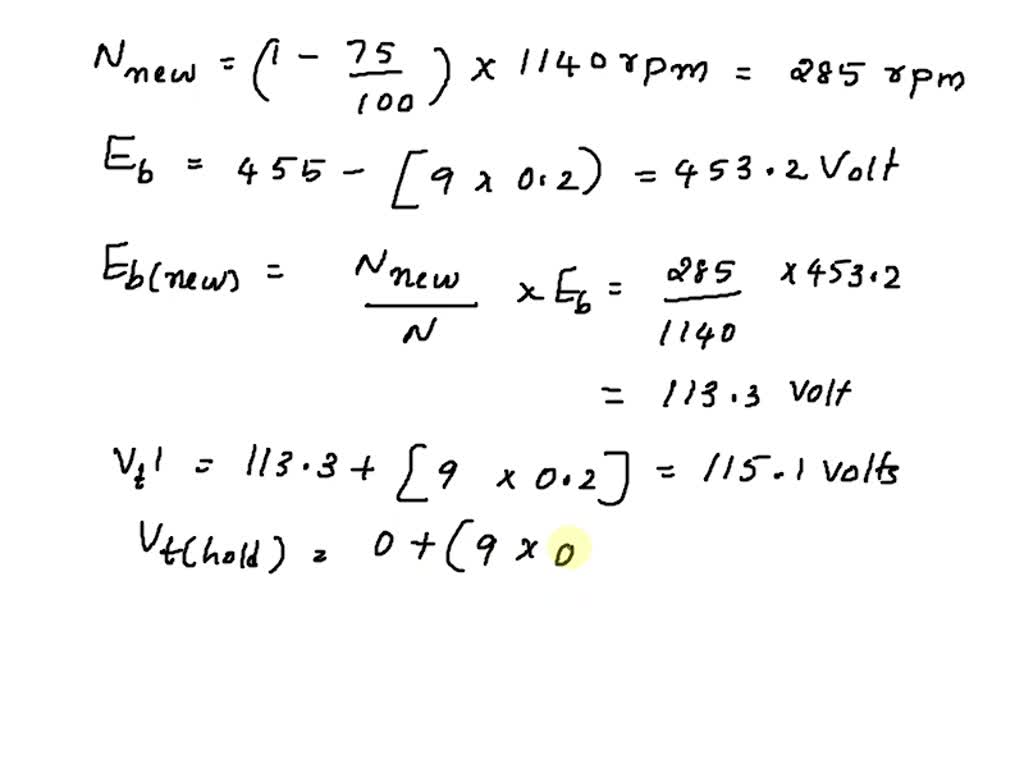 N new = (1 - 75/100) x 1140 rpm = 285 rpm
Eb = 455 - [9 x 0.2) = 453.2 Volt
Eb(new) = N new/N x Eb = 285/1140 x 453.2
= 113.3 Volt
Vt1 = 113.3 + [9 x 0.2] = 115.1 volts
Vt(hold) = 0 + (9 x 0